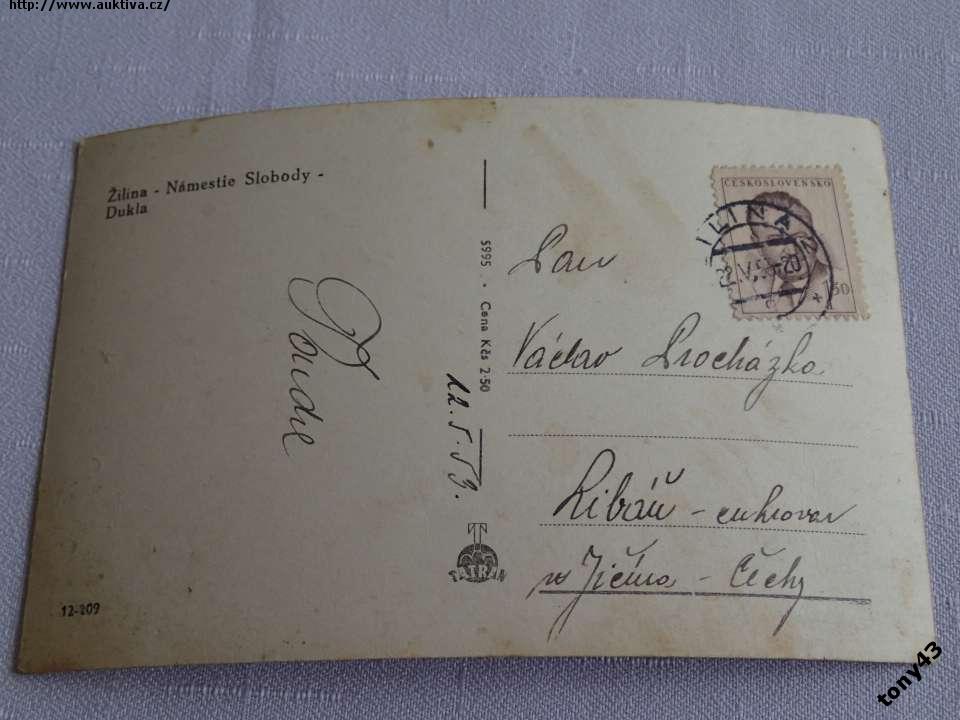 http://www.auktiva.cz/
Žilina - Námestie Slobody -
Dukla
12-209
5995 • Cena Kčs 2·50
12.5.53.
TATRAN
ČESKOSLOVENSKO
ŽILINA 2
1,50
Pan
Václav Procházka
Libáň - cukrovar
u Jičína - Čechy
tony43